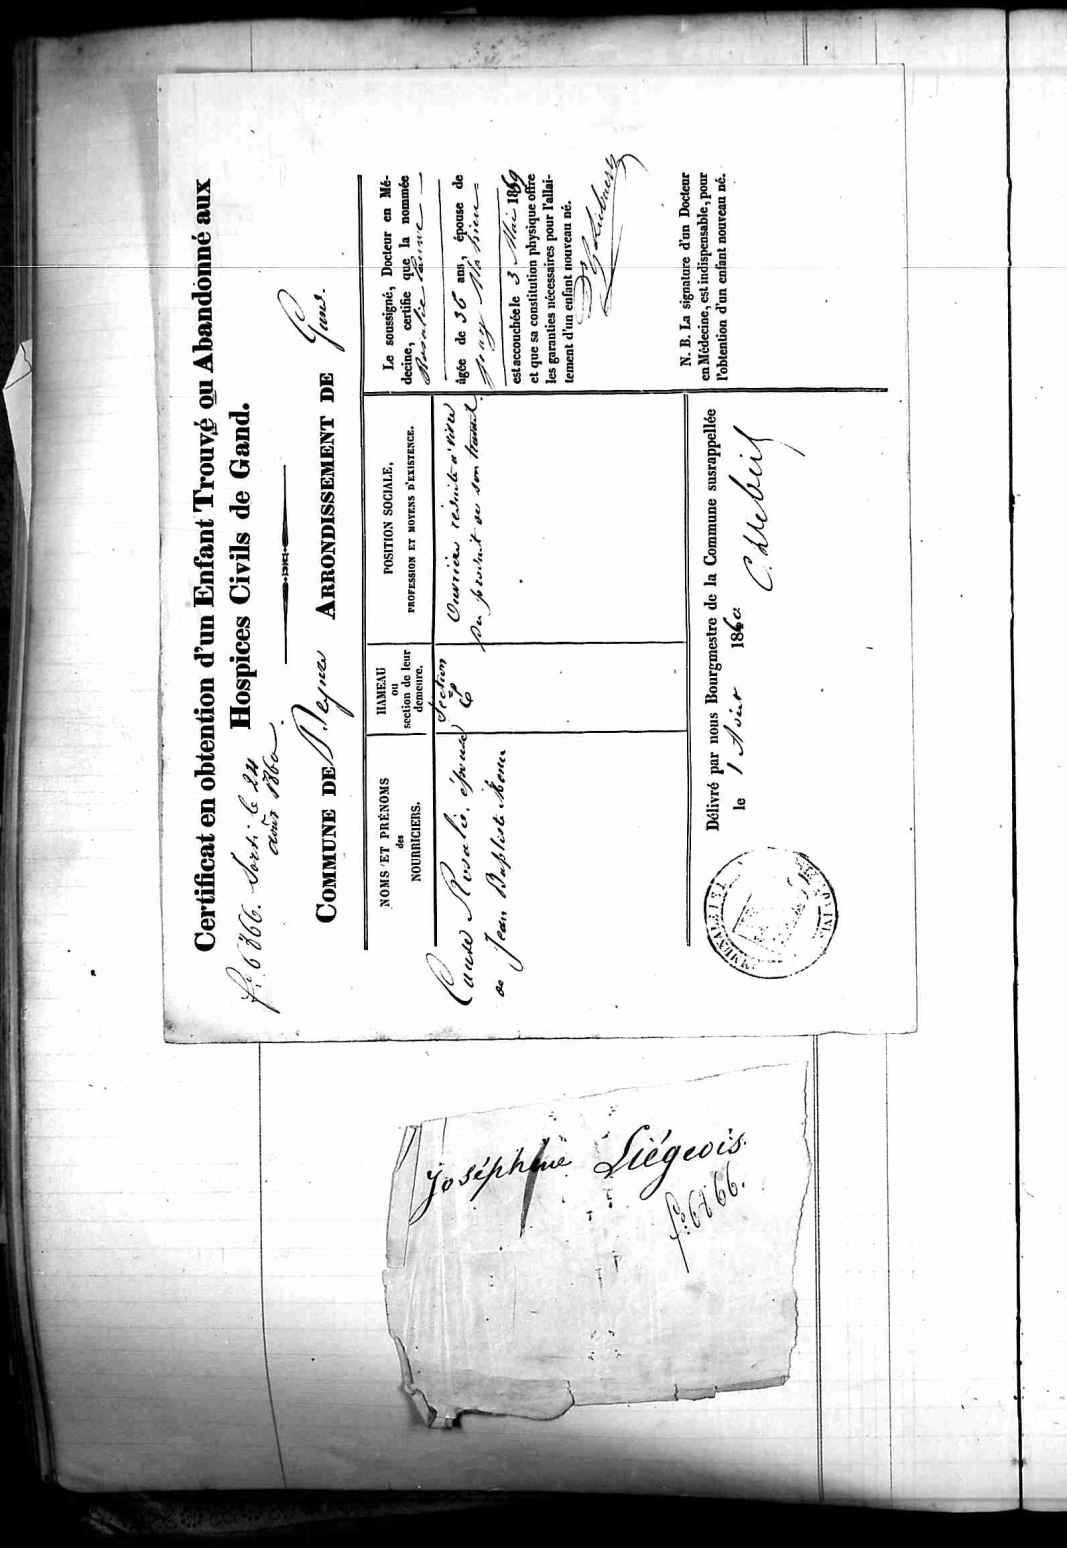 Certificat en obtention d'un Enfant Trouvé ou Abandonné aux
Hospices Civils de Gand.
fº 6366. Sorti le 24
août 1860.
COMMUNE DE Deynze ARRONDISSEMENT DE Gand.
NOMS ET PRÉNOMS
des
NOURRICIERS.
HAMEAU
ou
section de leur
demeure.
POSITION SOCIALE,
PROFESSION ET MOYENS D'EXISTENCE.
Rosalie, épouse
de Jean Baptiste
Section
C
Ouvriers
du produit de son travail.
Le soussigné, Docteur en Mé-
decine, certifie que la nommée
Rosalie
âgée de 36 ans, épouse de
est accouchée le 3 Mai 1859
et que sa constitution physique offre
les garanties nécessaires pour l'allai-
tement d'un enfant nouveau né.
N. B. La signature d'un Docteur
en Médecine, est indispensable, pour
l'obtention d'un enfant nouveau né.
Délivré par nous Bourgmestre de la Commune susrappellée
le 1 Août 1860
Joséphine Liégeois.
fº 6366.